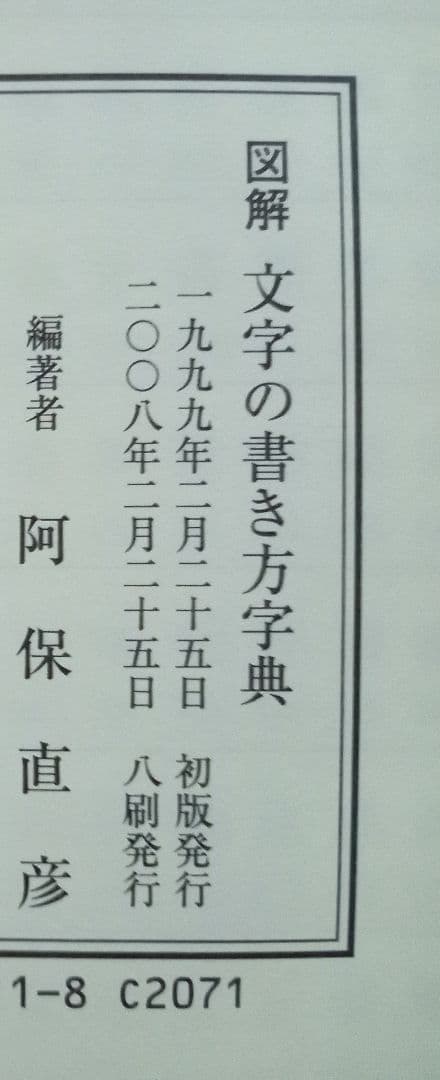 図解 文字の書き方字典
一九九九年二月二十五日 初版発行
二〇〇八年二月二十五日 八刷発行
編著者 阿保直彦
1-8 C2071